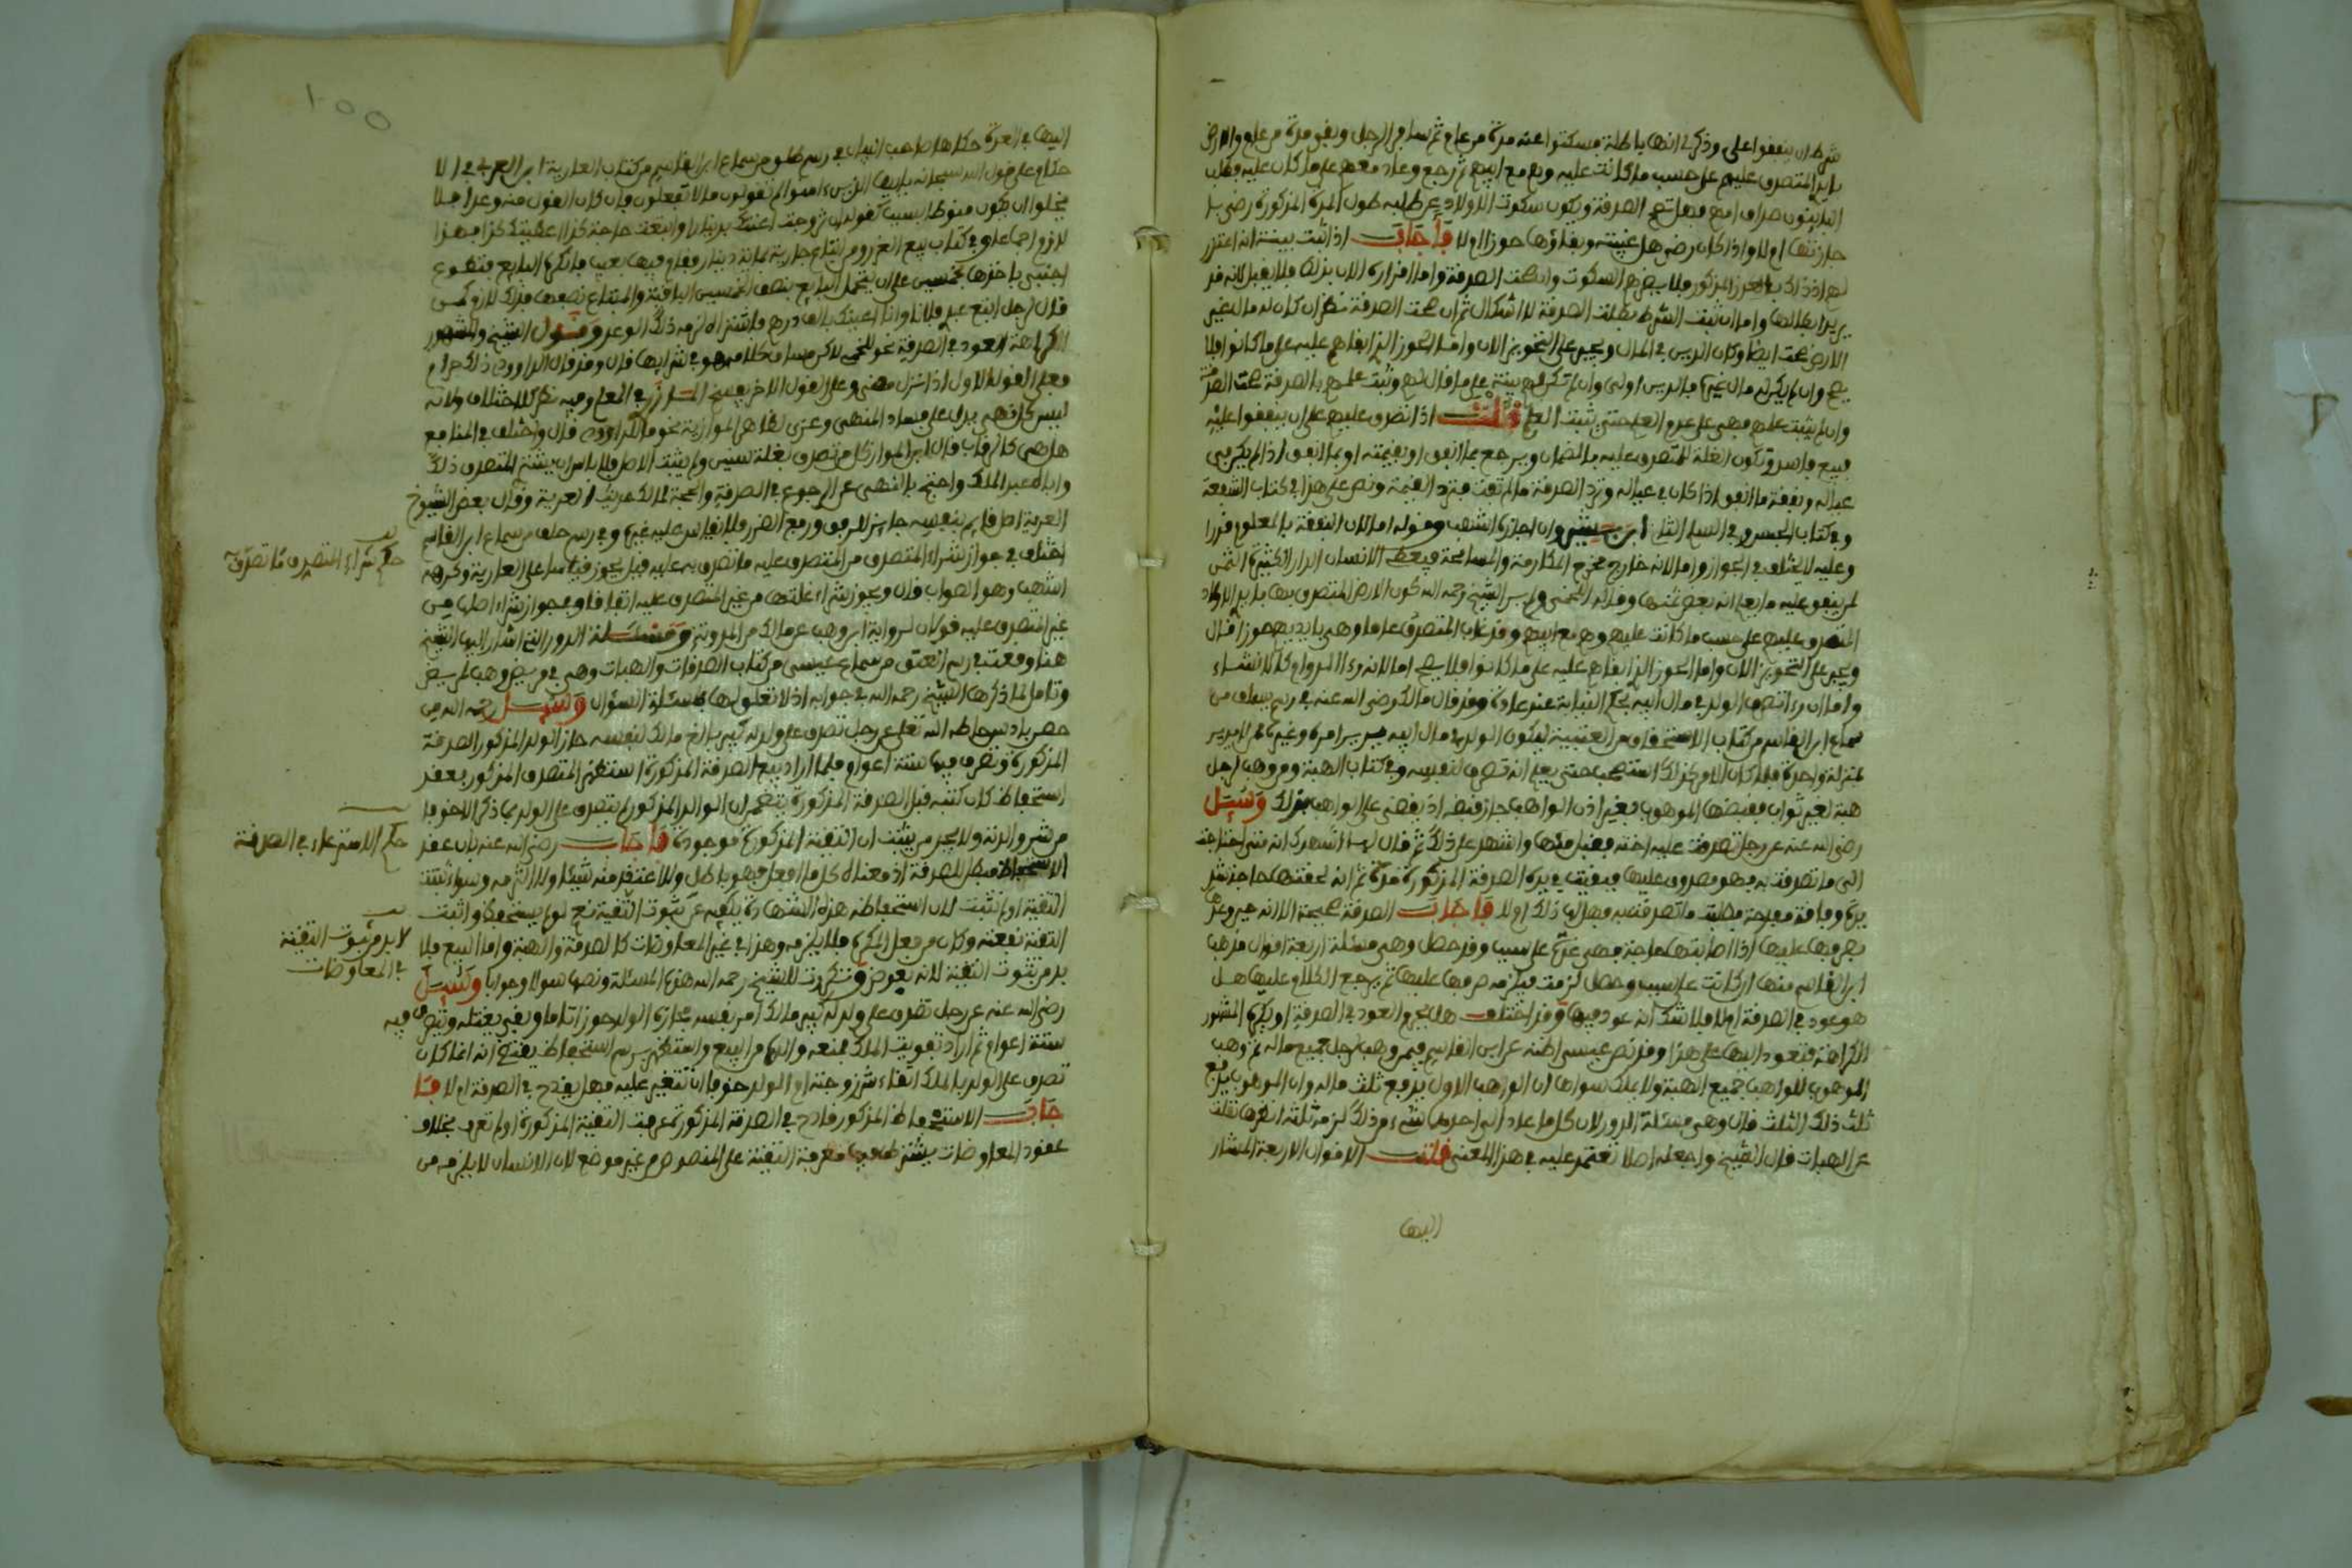 شرط ان ينفقوا على وذكر انها باطلة فسكتوا عنه مدة من عام ثم سافر الرجل وبقي مدة من عام والارض
بايد المتصدق عليهم على حسب ما كانت عليه وهم مع ابيهم ثم رجع وعاد معهم على ما كان عليه
جازتها ام لا واذا كان رضى هل غيبته وبقاؤها حوز ام لا فأجاب اذا ثبت ببينة انه اعتذر
لهم اذ ذاك بالعذر المذكور فلا يضرهم السكوت وان طلت الصدقة واما اقراره الان بذلك فلا يقبل لانه قد
يريد ابطالها واما ان ثبت الشرط بطلت الصدقة لا اشكال ثم ان صحت الصدقة نظر ان كان له مال غير
الارض صحت ايضا وكان الدين في المال ويجبر على التحويز الان واما الحوز الذي ادعاهم عليه على ما كانوا فلا
وان لم يثبت علمهم فهي على عدم العلم حتى يثبت العلم قلت اذا تصدق عليهم على ان ينفقوا عليه
فبيع فاسد وتكون الغلة للمتصدق عليه بالضمان ويرجع بما انفق او بقيمته او بما انفق اذا لم يكن في
عياله ونفقة ما انفق اذا كان في عياله وترد الصدقة ما لم تفت فترد القيمة ونص على هذا في كتاب الشفعة
وعليه لا يختلف في الجواز واما لانه خارج مخرج المكارمة والمسامحة فيعطي الانسان الدار الكثيرة الثمن
لمن ينفق عليه ما يعلم انه بعض ثمنها وقاله اللخمي ولم ير الشيخ رحمه الله كون الارض المتصدق بها بايد الاولاد
المتصدق عليهم على حسب ما كانت عليه وهم مع ابيهم وقد غاب المتصدق عاما وهي بايديهم حوزا قال
ويجبر على التحويز الان واما الحوز الذي ادعاهم عليه على ما كانوا فلا يصح اما لانه رءا الدوام كالانشاء
واما ان رءا تصرف الولد في مال ابيه بحكم النيابة عنه عادة وقد قال مالك رضي الله عنه في رسم يسلف من
سماع ابن القاسم من كتاب الاستحقاق من العتبية ليكون الولد في مال ابيه يدبر امره وغيره
بمنزلة واحدة فلما كان الامر كذلك استصحب حتى يعلم انه تصرف لنفسه وفي كتاب الهبة ومن وهب لرجل
هبة لغير ثواب فقبضها الموهوب بغير اذن الواهب جاز قبضه اذ يقضى على الواهب بذلك وسئل
رضي الله عنه عن رجل تصدقت عليه اخته فقبل منها واشهد على ذلك ثم قال لها اشهدك انه متى احتاجت
الى ما تصدقت به فهو مصروف عليها فبقيت في يده الصدقة المذكورة مدة ثم انه لحقتها حاجة
وفاقة مفدحة فطلبت ما تصدقت به فهل لها ذلك ام لا فأجاب الصدقة صحيحة الا انه
يصرفها عليها اذا اصابتها حاجة فهي عدة على سبب وقد حصل وهي مسئلة اربعة اقوال مذهب
ابن القاسم منها ان كانت على سبب وحصل لزمت فيلزمه صرفها عليها ثم يرجع الكلام عليها هل
هو عود في الصدقة ام لا فلا شك انه عود فيها وقد اختلف هل يحرم العود في الصدقة او يكره المشهور
الكراهة فتعود اليها على هذا وقد نص عيسى اظنه عن ابن القاسم فيمن وهب لرجل جميع ماله ثم وهب
الموهوب للواهب جميع الهبة ولا يملك سواها ان الواهب الاول يرفع ثلث ماله وان الموهوب يرفع
ثلث ذلك الثلث قال وهي مسئلة الدور لان كل ما عاد الى احدهما شيء من ذلك لزمه ثلثه
عن الهبات قال الشيخ واجعله اصلا تعتمد عليه في هذا المعنى قلت الاقوال الاربعة المشار
اليها
100
اليها في العدة حكاها صاحب البيان في رسم طلق من سماع ابن القاسم من كتاب العارية ابن العربي في الا
حكام على قول الله سبحانه يا ايها الذين ءامنوا لم تقولون ما لا تفعلون فان كان القول منه وعدا فلا
يخلوا ان يكون منوطا بسبب كقوله ان تزوجت اعنتك بدينار او ابتعت حاجة كذا اعطيتك كذا فهذا
لازم اجماعا وفي كتاب بيع الغرر ومن ابتاع جارية بماية دينار فقام فيها بعيب فانكره البايع فتطوع
اجنبي باخذها بخمسين على ان يتحمل البايع نصف الخمسين الباقية والمبتاع نصفها فذلك لازم كمن
قال لرجل ابتع عبد فلان وانا اعينك بالف درهم فاشتراه لزمه ذلك الوعد وقول الشيخ والمشهور
الكراهة العود في الصدقة نحوه للخمي
ليس كل نهي يدل على فساد المنهي وعزى لظاهر الموازية نحو ما للداوودي قال واختلف في المنافع
هل هي كالرقاب قال ابن المواز كل من تصدق بغلة سنين ولم يبتل الاصل فلا باس ان يشتري المتصدق ذلك
واباه عبد الملك واحتج بالنهي عن الرجوع في الصدقة والحجة لمالك حديث العرية وقال بعض الشيوخ
العرية اصل قايم بنفسه جايز للرفق ورفع الضرر فلا يقاس عليه غيره وفي رسم حلف من سماع ابن القاسم
اختلف في جواز شراء المتصدق من المتصدق عليه ما تصدق به عليه فقيل يجوز قياسا على العارية وكرهه
اشهب وهو الصواب قال ويجوز شراء غلتها من غير المتصدق عليه اتفاقا وفي جواز شراء اصلها من
غير المتصدق عليه قولان لرواية ابن وهب عن مالك من المدونة ومسئلة الدور التي اشار اليها الشيخ
هنا وقعت في رسم العتق من سماع عيسى من كتاب الصدقات والهبات وهي في مريض وهب لمريض
وتامل لما ذكرها الشيخ رحمه الله في جوابه اذ لا تعلق لها بمسئلة السؤال وسئل رحمه الله من
المذكورة وتصرف فيها ستة اعوام فلما اراد بيع الصدقة المذكورة استظهر المتصدق المذكور بعقد
استحفاظ كان كتبه قبل الصدقة المذكورة يتضمن ان الوالد المذكور لم يتصدق على الولد بما ذكر الا خوفا
من شر والدته ولا يجد من يثبت ان التقية المذكورة موجودة فأجاب رضي الله عنه بان عقد
الاستحفاظ مبطل للصدقة اذ معناه كل ما افعل فهو باطل ولا اعتقد منه شيئا ولا التزمه وسواء ثبتت
التقية او لم تثبت لان استحفاظه هذه الشهادة يكفيه عن ثبوت التقية نعم لو لم يستحفظ واثبت
التقية نفعته وكان من فعل المكره فلا يلزمه وهذا في غير المعاوضات كالصدقة والهبة واما البيع فلا
بد من ثبوت التقية لانه بعوض وتكررت للشيخ رحمه الله هذه المسئلة ونصها سؤالا وجوابا وسئل
رضي الله عنه عن رجل تصدق على ولد له كبير مالك امر نفسه فحازه الولد حوزا تاما وبقي يغتله ويتصرف فيه
ستة اعوام ثم اراد تفويت الملك فمنعه والده من البيع واستظهر برسم استحفاظ يقتضي انه انما كان
تصدق على الولد بالملك اتقاء شر زوجته ام الولد خوفا ان تتغير عليه فهل يقدح في الصدقة ام لا فأ
جاب الاستحفاظ المذكور قادح في الصدقة المذكورة عرفت التقية المذكورة او لم تعرف بخلاف
عقود المعاوضات يشترط فيها معرفة التقية على المنصوص في غير موضع لان الانسان لا يلزمه من
حكم شراء المتصدق ما تصدق
حكم الاسترعاء في الصدقة
لا بد من ثبوت التقية
في المعاوضات